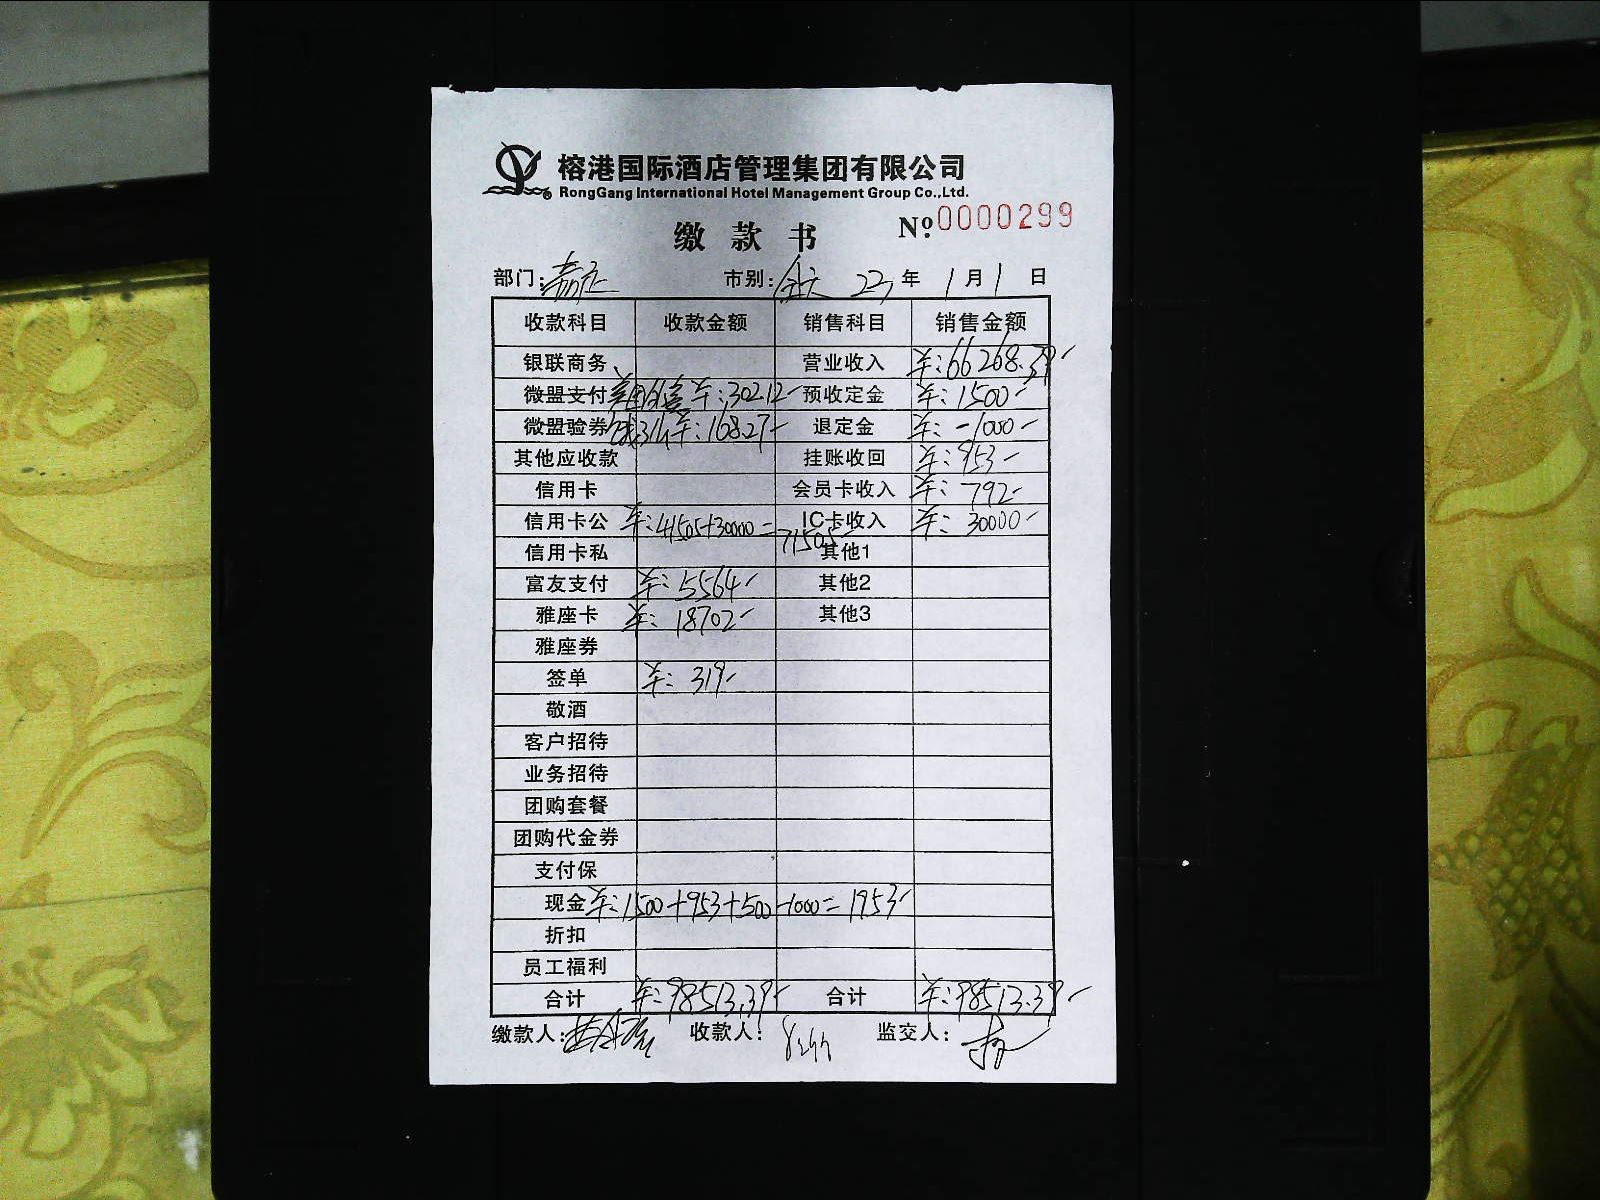 榕港国际酒店管理集团有限公司
RongGang International Hotel Management Group Co.,Ltd.
缴款书 Nº 0000299
部门: 市别:全天 23年1月1日
收款科目 收款金额 销售科目 销售金额
银联商务 营业收入 卡:66268.39
微盟支付 美团外卖卡:302.12 预收定金 卡:1500
微盟验券 卡:168.27 退定金 卡:-1000
其他应收款 挂账收回 卡:953
信用卡 会员卡收入 卡:792
信用卡公 卡:41505+30000=71505 IC卡收入 卡:30000
信用卡私 其他1
富友支付 卡:5564 其他2
雅座卡 卡:18702 其他3
雅座券
签单 卡:319
敬酒
客户招待
业务招待
团购套餐
团购代金券
支付保
现金 卡:1500+953+500-1000=1953
折扣
员工福利
合计 卡:98513.39 合计 卡:98513.39
缴款人: 收款人: 监交人: